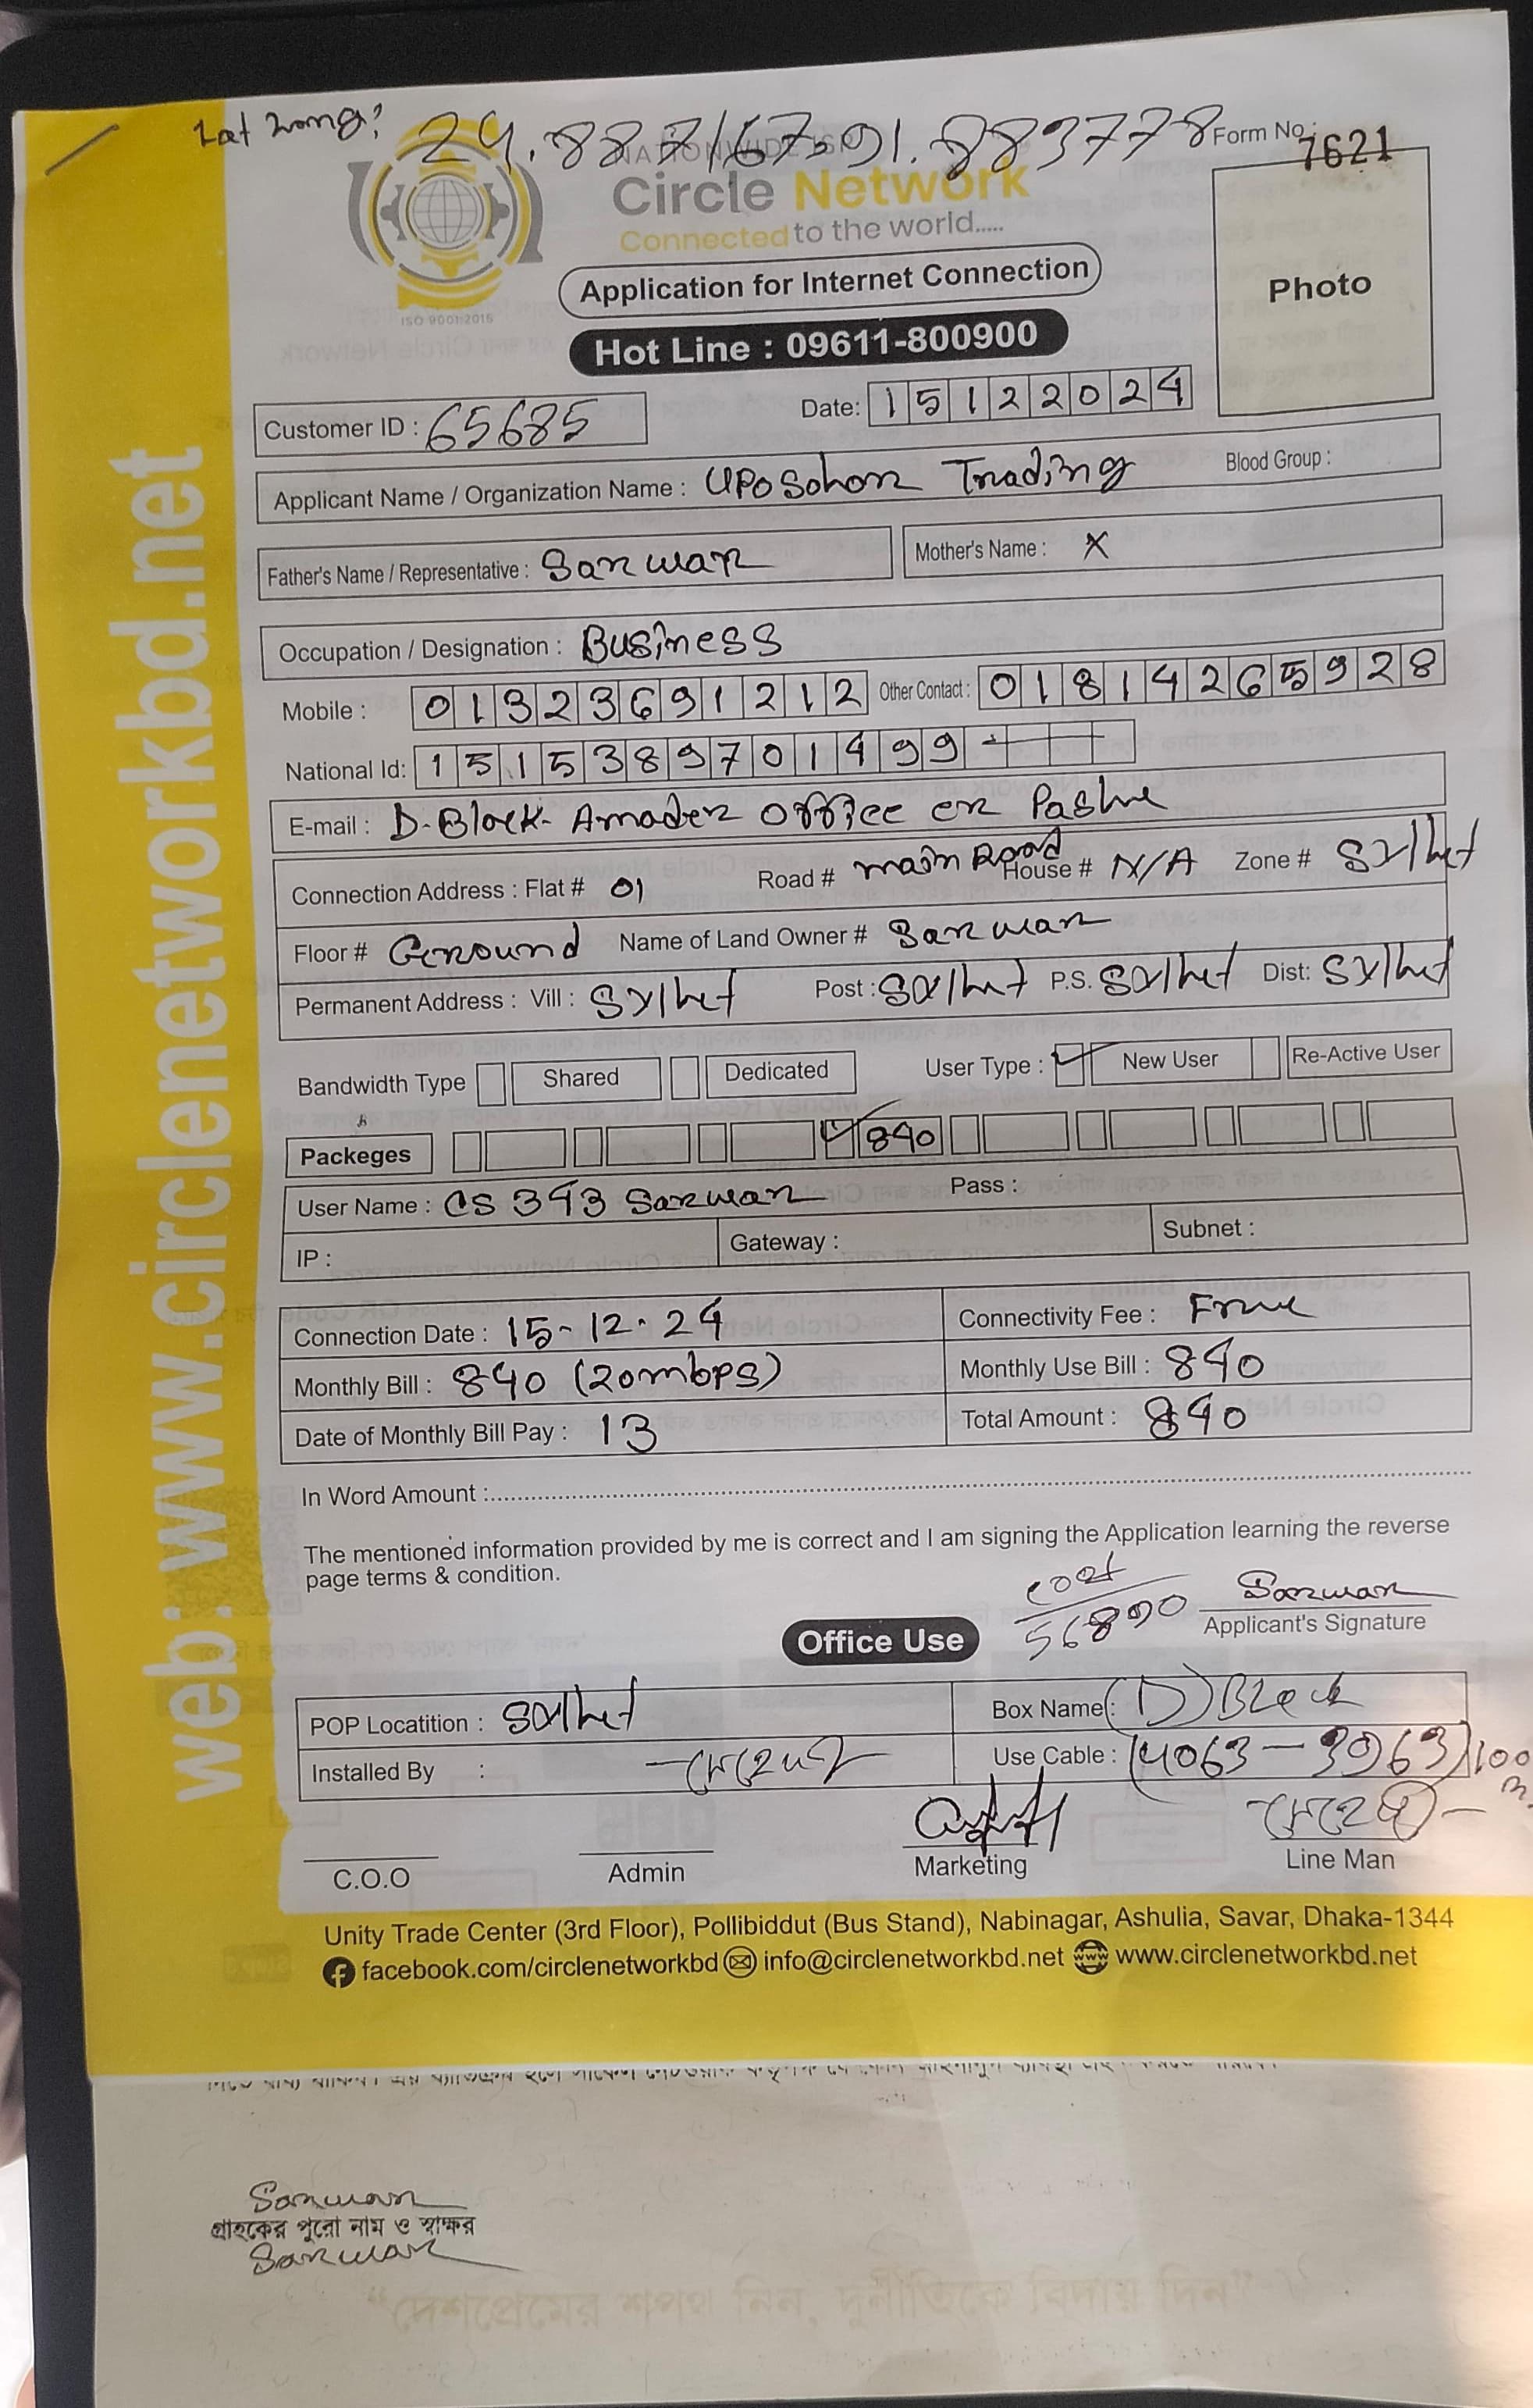 Lat Long: 24.887167, 91.883778
Form No: 7621
NATIONWIDE ISP
Circle Network
Connected to the world.....
ISO 9001:2015
Application for Internet Connection
Hot Line : 09611-800900
Photo
Customer ID : 65685
Date: 15122024
Applicant Name / Organization Name : UPOSohor Trading Blood Group :
Father's Name / Representative : Sarwar Mother's Name : X
Occupation / Designation : Business
Mobile : 01323691212 Other Contact : 01814265928
National Id: 1515389701499
E-mail : D-Block- Amader Office er Pashe
Connection Address : Flat # 01 Road # main Road House # N/A Zone # Sylhet
Floor # Ground Name of Land Owner # Sarwar
Permanent Address : Vill : Sylhet Post : Sylhet P.S. Sylhet Dist: Sylhet
Bandwidth Type Shared Dedicated User Type : New User Re-Active User
Packeges 840
User Name : CS 343 Sarwar Pass :
IP : Gateway : Subnet :
Connection Date : 15-12-24 Connectivity Fee : Free
Monthly Bill : 840 (20mbps) Monthly Use Bill : 840
Date of Monthly Bill Pay : 13 Total Amount : 840
In Word Amount :
The mentioned information provided by me is correct and I am signing the Application learning the reverse
page terms & condition.
Sarwar
Applicant's Signature
Office Use
POP Locatition : Sylhet Box Name : (D) Block
Installed By : Use Cable : (4063-3963) 100 m.
C.O.O Admin Marketing Line Man
Unity Trade Center (3rd Floor), Pollibiddut (Bus Stand), Nabinagar, Ashulia, Savar, Dhaka-1344
facebook.com/circlenetworkbd info@circlenetworkbd.net www.circlenetworkbd.net
web: www.circlenetworkbd.net
Sarwar
গ্রাহকের পুরো নাম ও স্বাক্ষর
Sarwar
“দেশপ্রেমের শপথ নিন, দুর্নীতিকে বিদায় দিন”